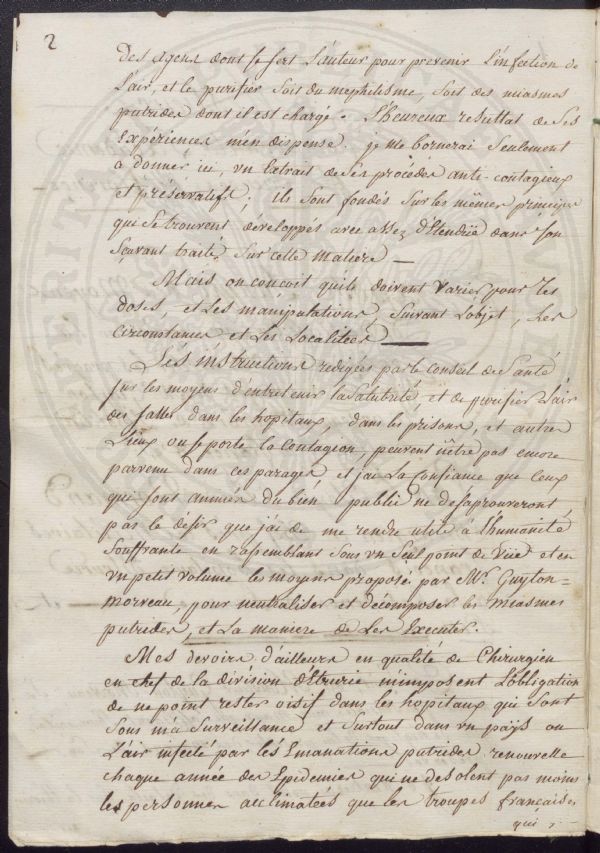 2
Des agens dont se sert l'auteur pour prevenir l'infection de
l'air, et le purifier soit du mephitisme, soit des miasmes
putrides dont il est chargé. l'heureux resultat de ses
Expériences m'en dispense. je me bornerai seulement
a donner ici, un Extrait de ses procédés anti-contagieux
et préservatifs; ils sont fondés sur les mêmes principes
qui se trouvent développés avec assez d'Etendüe dans son
sçavant traité sur cette matiere —
Mais on conçoit quils doivent varier pour les
doses, et les manipulations, suivant l'objet, les
circonstances et les Localitées —
Les instructions redigées par le Conseil de Santé
sur les moyens d'entretenir la Salubrité, et de purifier l'air
des salles dans les hopitaux, dans les prisons, et autres
Lieux ou se porte la Contagion, peuvent nêtre pas encore
parvenu dans ces parages, et j'ai la Confiance que Ceux
qui sont animés du bien public ne desaprouveront
pas le desir que j'ai de me rendre utile à l'humanité
souffrante en rassemblant sous un seul point de vüe et en
un petit volume les moyens proposés par Mr. Guyton=
Morveau, pour neutraliser et décomposer les miasmes
putrides, et La maniere de Les Executer.
Mes devoirs d'ailleurs en qualité de Chirurgien
en chef de la division d'Etrurie m'imposent L'obligation
de ne point rester oisif dans les hopitaux qui sont
sous ma Surveillance et surtout dans un païs ou
L'air infecté par les Emanations putrides renouvelle
chaque année des Epidemies qui ne desolent pas moins
les personnes acclimatées que les troupes françaises
qui